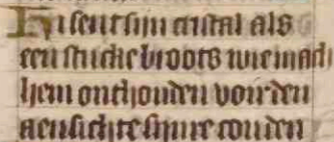 Hi sent sijn cristal als
een stucke broots wie mach
hem onthouden voirden
aensichte sijnre couden